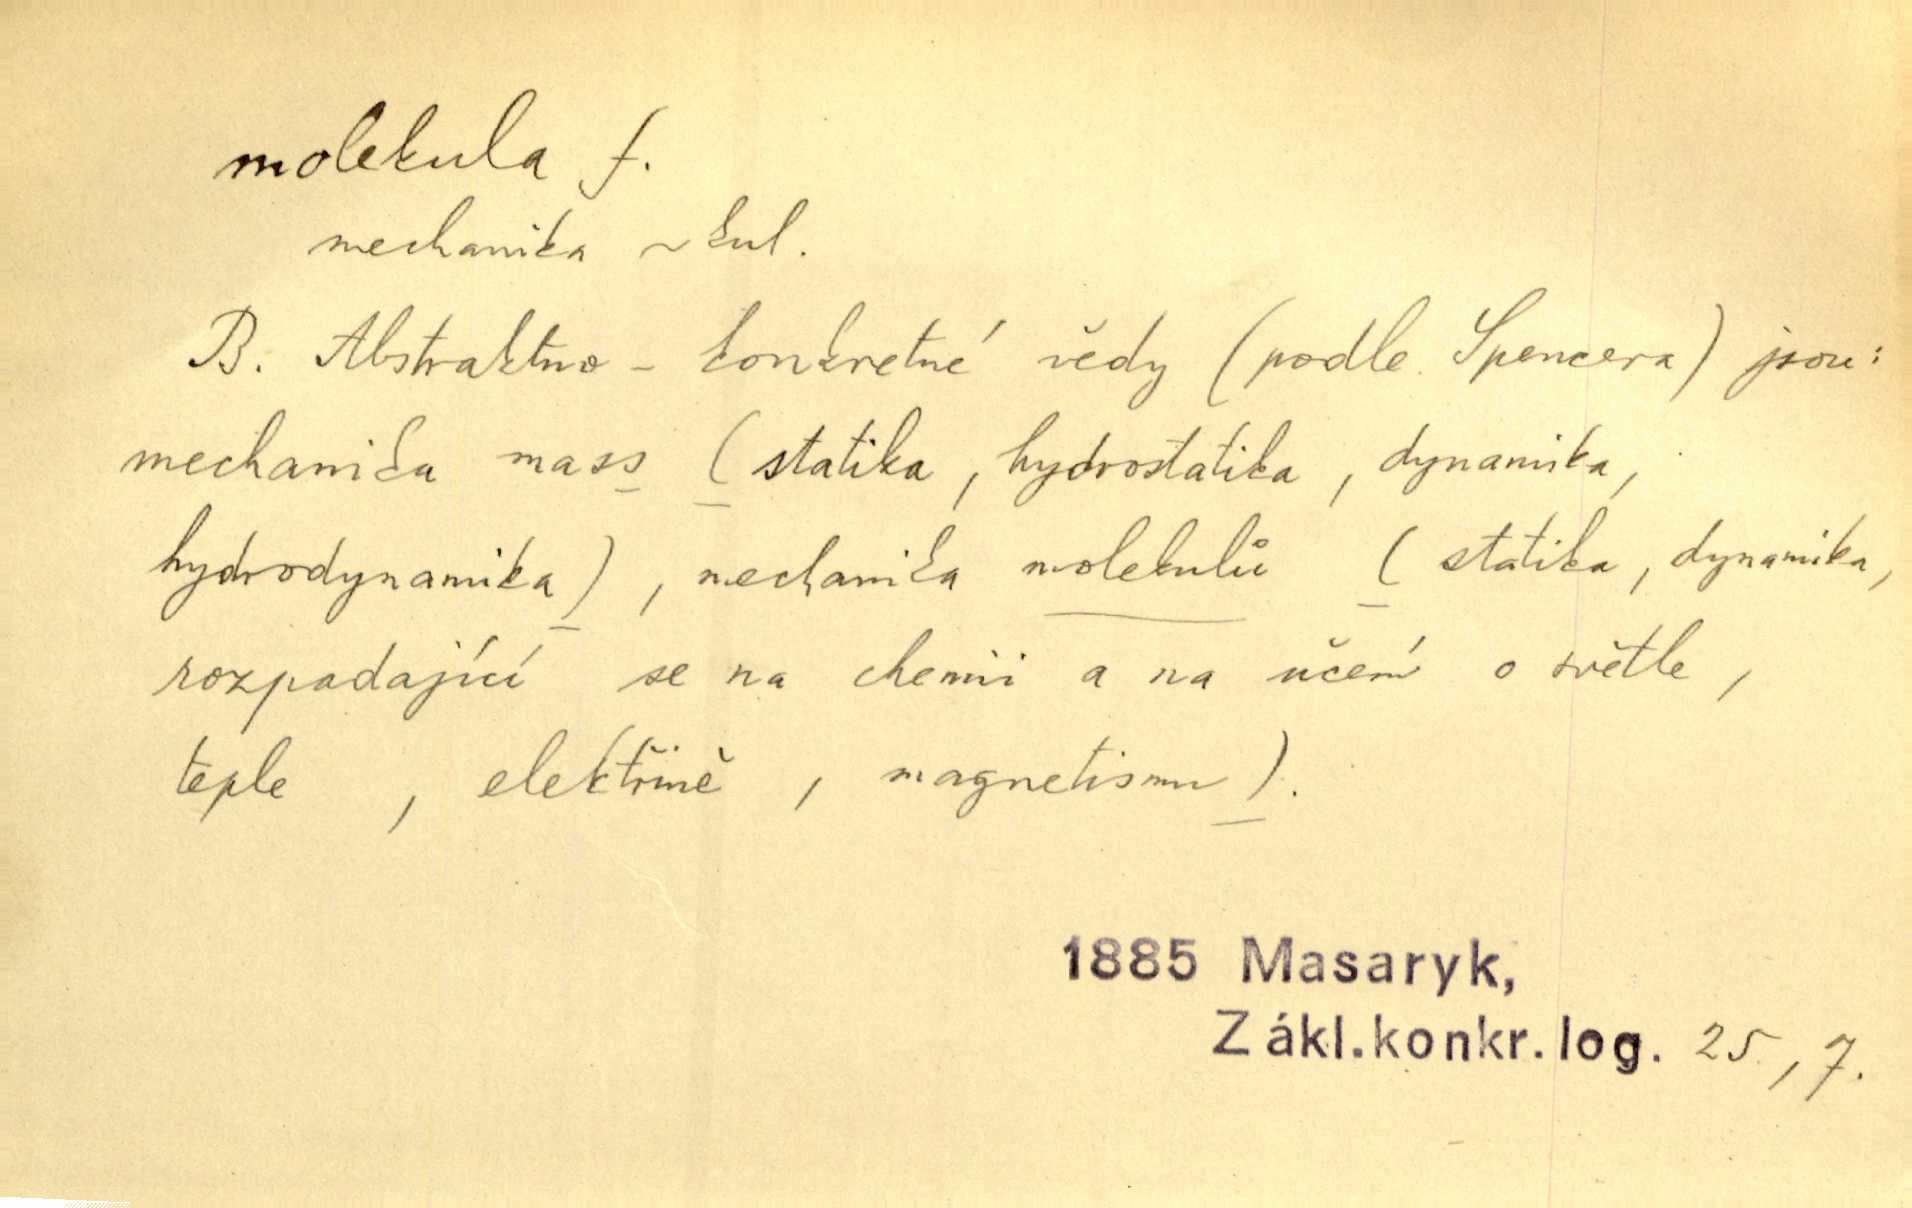 molekula f.
mechanika ~ kul.
B. Abstraktno - konkretné vědy (podle Spencera) jsou:
mechanika mass (statika, hydrostatika, dynamika,
hydrodynamika), mechanika molekulů (statika, dynamika,
rozpadající se na chemii a na učení o světle,
teple, elektřině, magnetismu).
1885 Masaryk,
Zákl.konkr.log. 25, 7.